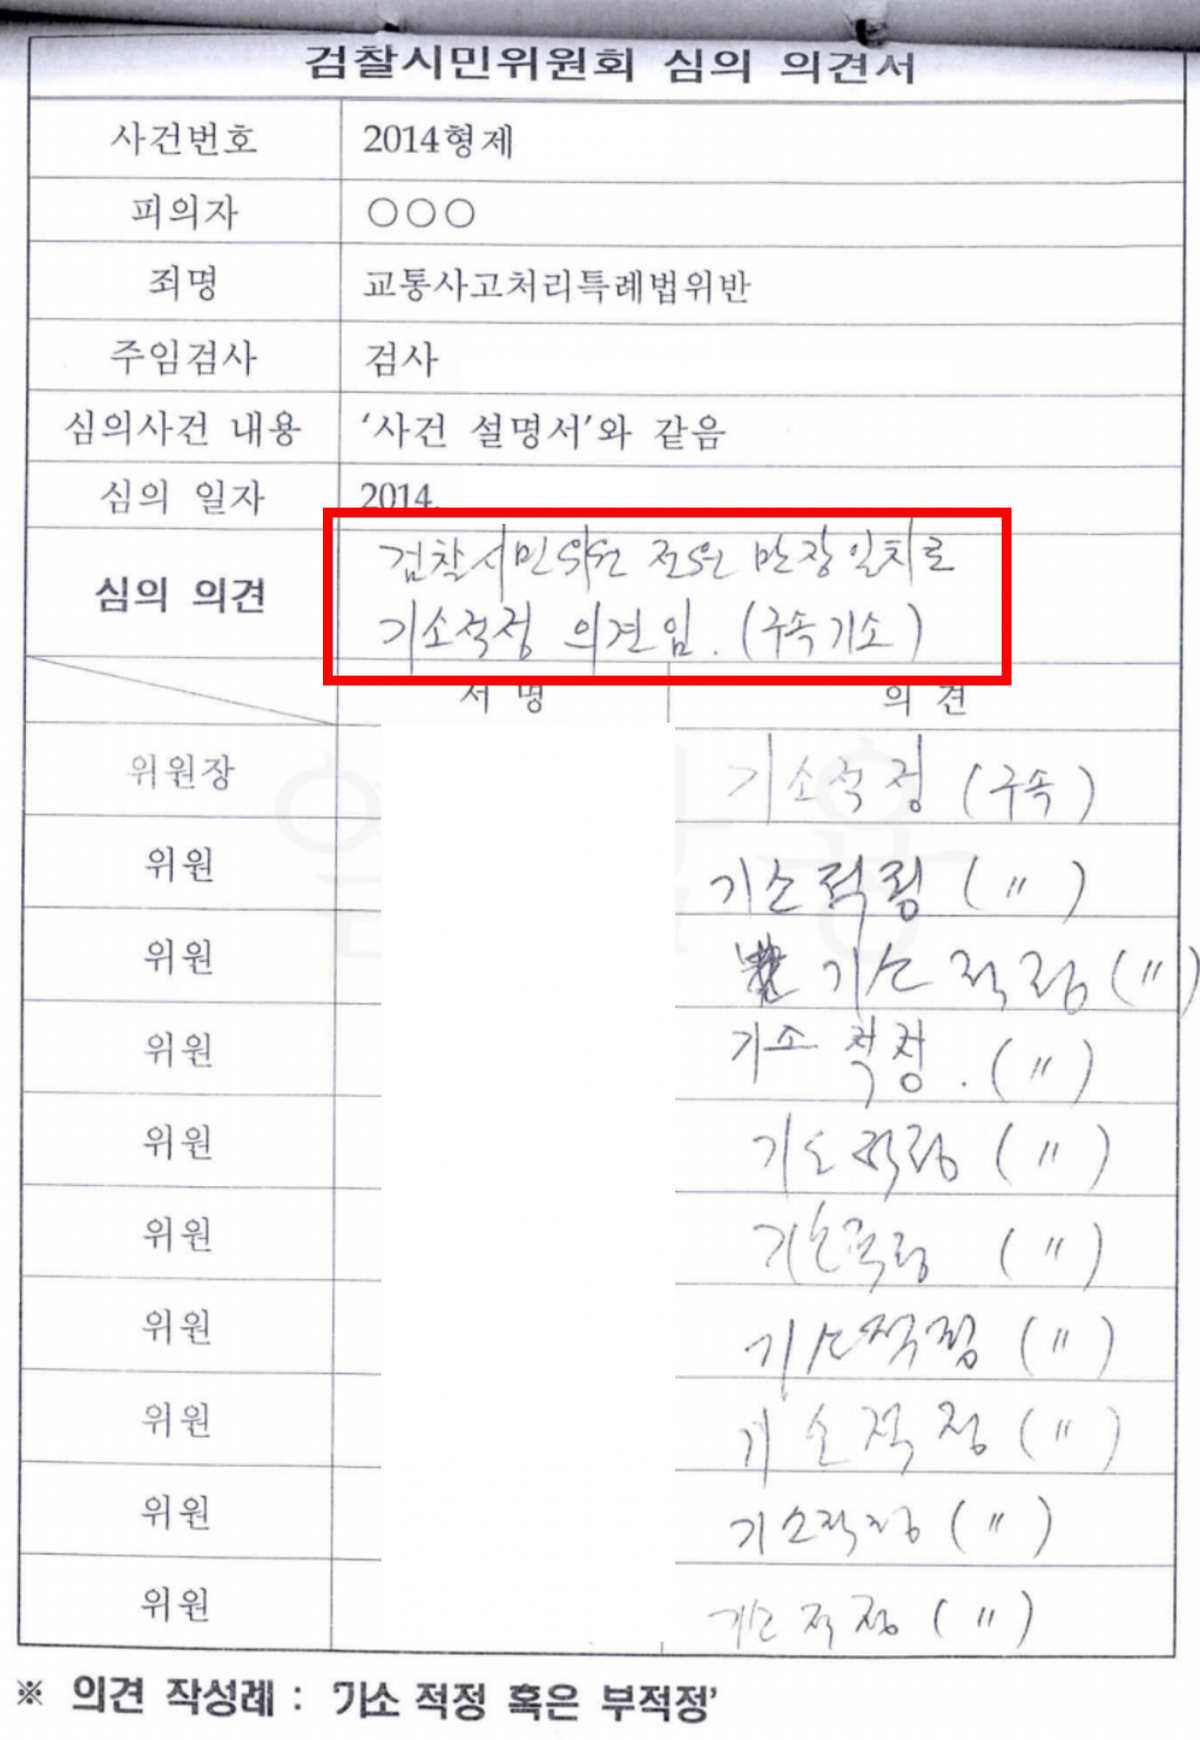 검찰시민위원회 심의 의견서
사건번호 2014형제
피의자 ○○○
죄명 교통사고처리특례법위반
주임검사 검사
심의사건 내용 '사건 설명서'와 같음
심의 일자 2014.
심의 의견 검찰시민위원 전원 만장일치로
기소적정 의견임. (구속기소)
서 명 의 견
위원장 기소적정 (구속)
위원 기소적정 (〃)
위원 기소적정 (〃)
위원 기소적정. (〃)
위원 기소적정 (〃)
위원 기소적정 (〃)
위원 기소적정 (〃)
위원 기소적정 (〃)
위원 기소적정 (〃)
위원 기소적정 (〃)
※ 의견 작성례 : '기소 적정 혹은 부적정'